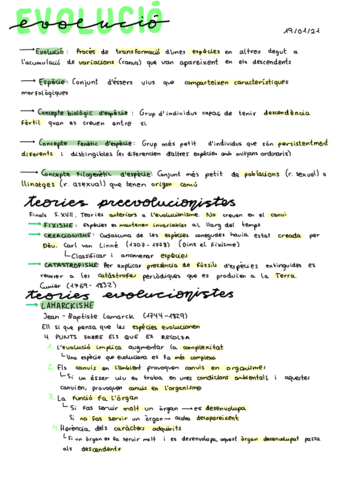 EVOLUCIÓ
evolució
19/01/21
→ Evolució: Procés de transformació d'unes espècies en altres degut a
l'acumulació de variacions (canvis) que van apareixent en els descendents
→ Espècie: Conjunt d'éssers vius que comparteixen característiques
morfològiques
→ Concepte biològic d'espècie: Grup d'individus capaç de tenir descendència
fèrtil quan es creuen entre si
→ Concepte fenètic d'espècie: Grup més petit d'individus que són persistentment
diferents i distingibles (es diferencien d'altres espècies amb mitjans ordinaris)
→ Concepte filogenètic d'espècie: Conjunt més petit de poblacions (r. sexual) o
llinatges (r. asexual) que tenen origen comú
teories preevolucionistes
Finals S.XVII. Teories anteriors a l'evolucionisme. No creuen en el canvi
→ FIXISME: espècies es mantenen invariables al llarg del temps
→ CREACIONISME: Cadascuna de les espècies conegudes havia estat creada per
Déu. Carl von Linné (1707-1778) (Dins el fixisme)
↳ Classificar i anomenar espècies
→ CATASTROFISME: Per explicar presència de fòssils d'espècies extingides es
recorrer a les catàstrofes periòdiques que es produïen a La Terra.
Cuvier (1769-1832)
teories evolucionistes
→ LAMARCKISME
Jean-Baptiste Lamarck (1744-1829)
Ell si que pensa que les espècies evolucionen
4 PUNTS SOBRE ELS QUE ES RECOLZA
1. L'evolució implica augmentar la complexitat
↳ Una espècie que evoluciona es fa més complexa
2. Els canvis en l'ambient provoquen canvis en organismes
↳ Si un ésser viu es troba en unes condicions ambientals i aquestes
canvien, provoquen canvis en l'organisme
3. La funció fa l'òrgan
↳ Si fas servir molt un òrgan → es desenvolupa
Si no fas servir un òrgan → acaba desapareixent
4. Herència dels caràcters adquirits
↳ Si un òrgan es fa servir molt i es desenvolupa, aquest òrgan desenvolupat passa
als descendents